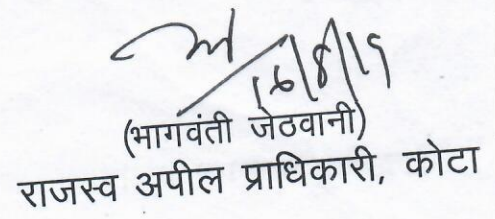 16/8/19
(भागवंती जेठवानी)
राजस्व अपील प्राधिकारी, कोटा